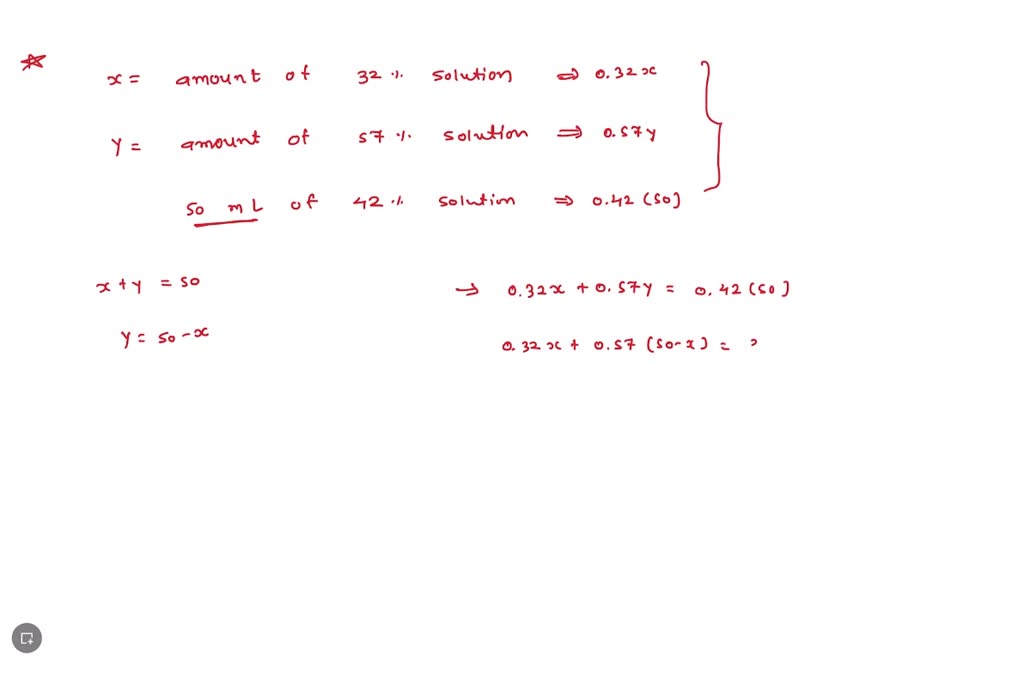 x = amount of 32 % solution ⇒ 0.32x
Y = amount of 57 % solution ⇒ 0.57y
50 mL of 42 % solution ⇒ 0.42 (50)
x + y = 50
→ 0.32x + 0.57y = 0.42 (50)
Y = 50 - x
0.32x + 0.57 (50-x) =